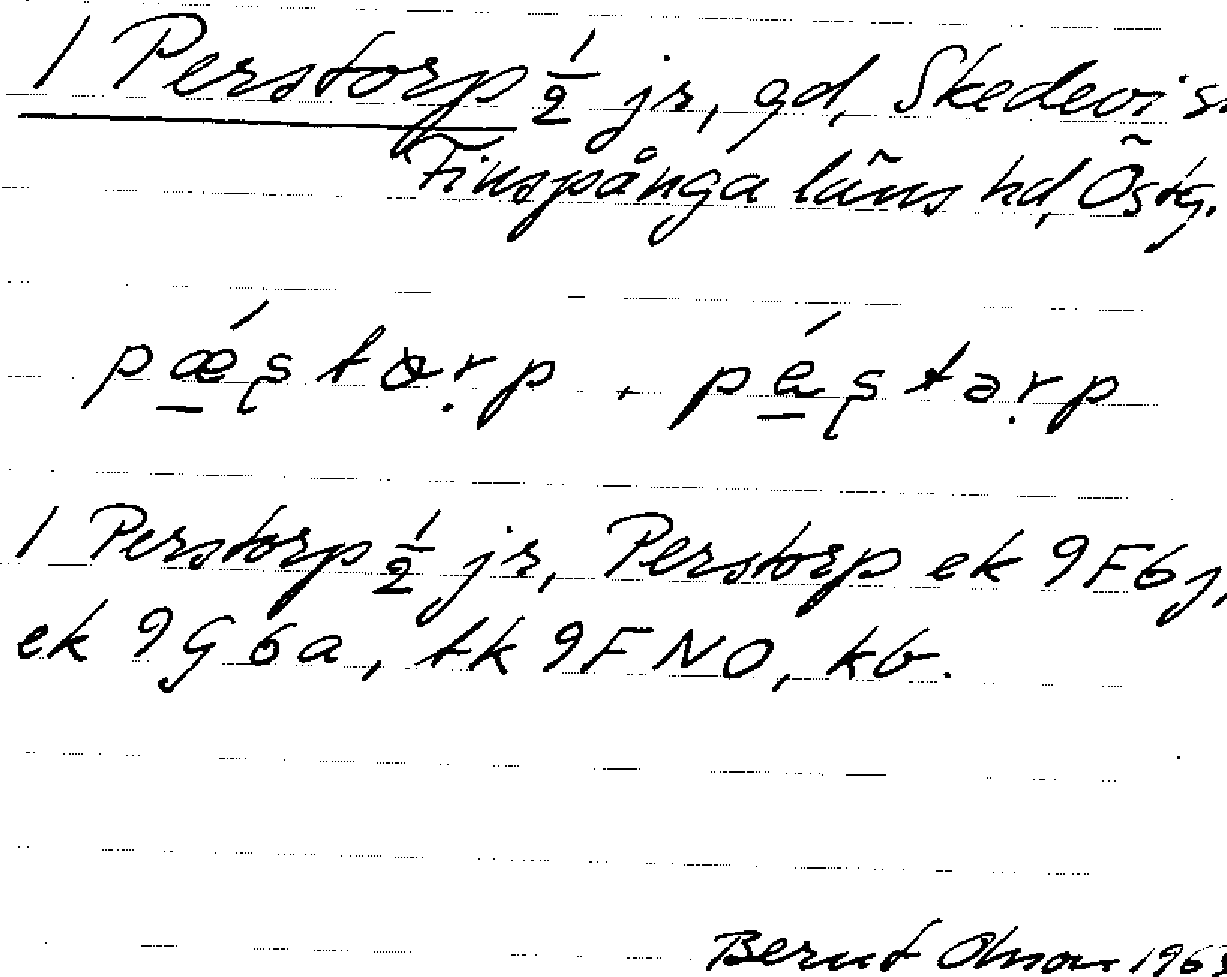 1 Perstorp ½ jr, gd, Skedevi s
Finspånga läns hd, Östg.
pǽ̱ştɑrp . pé̱ştərp
1 Perstorp ½ jr, Perstorp ek 9F6j,
ek 9G6a, tk 9F NO, kb.
Bernt Olsson 1963